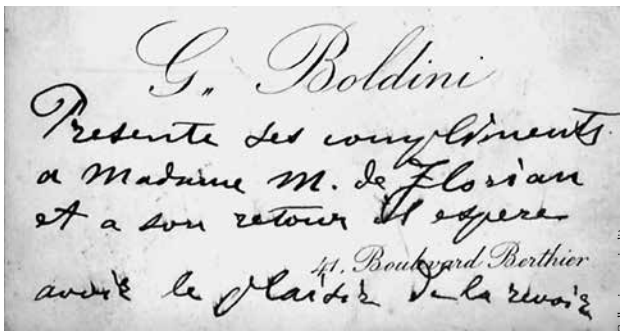 G. Boldini
Presente ses compliments
a Madame M. de Florian
et a son retour il espere
41, Boulevard Berthier
avoir le plaisir de la revoir